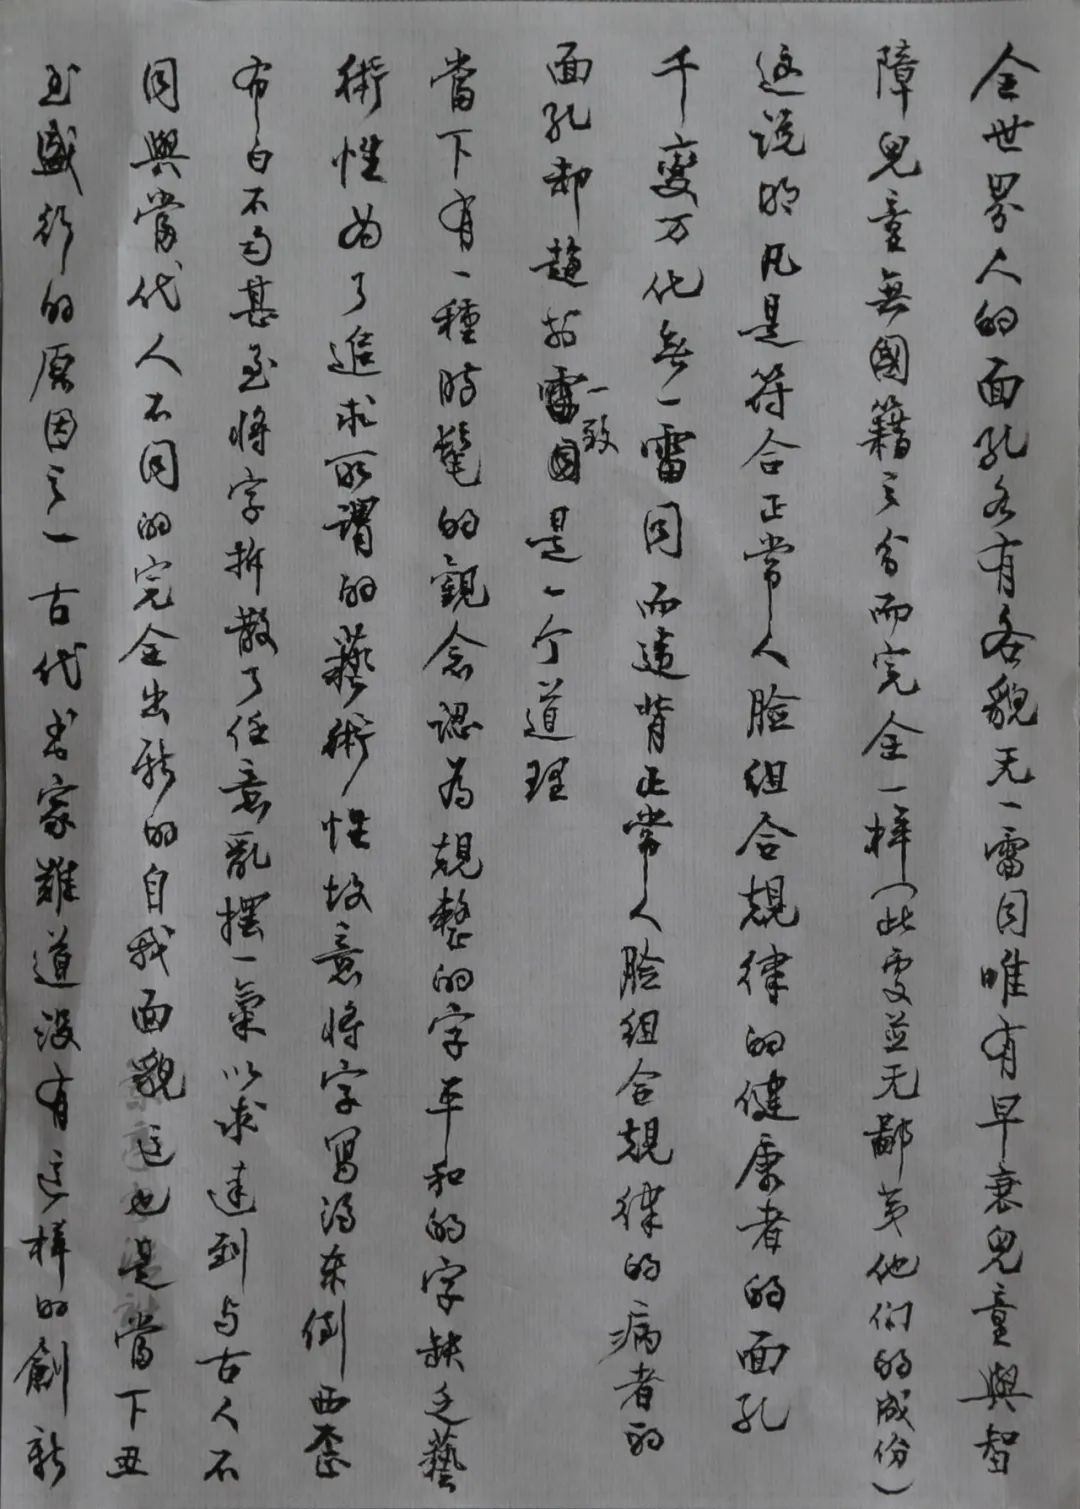 全世界人的面孔各有各貌无一雷同唯有早衰兒童與智
障兒童無國籍之分而完全一样（此处並无鄙夷他们的成份）
这说明凡是符合正常人脸组合規律的健康者的面孔
千變万化無一雷同而違背正常人脸组合規律的病者的
面孔却趋於一致是一个道理
當下有一種時髦的觀念認為規整的字平和的字缺乏藝
術性为了追求所謂的藝術性故意将字寫得东倒西歪
布白不匀甚至将字拆散了任意亂摆一氣以求達到与古人不
同與當代人不同的完全出新的自我面貌这也是當下丑
书盛行的原因之一古代书家難道没有这样的創新